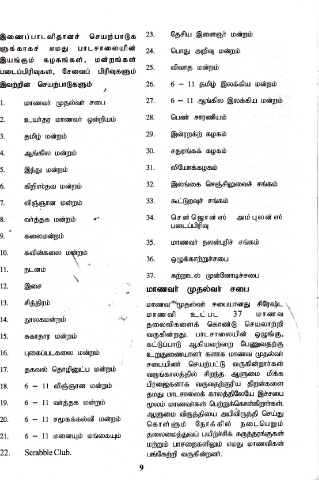 இணைப்பாடவிதானச் செயற்பாடுக
ளுக்காகச் எமது பாடசாலையின்
இயங்கும் கழகங்கள், மன்றங்கள்
படைப்பிரிவுகள், சேவைப் பிரிவுகளும்
இவற்றின் செயற்பாடுகளும்
1. மாணவர் முதல்வர் சபை
2. உயர்தர மாணவர் ஒன்றியம்
3. தமிழ் மன்றம்
4. ஆங்கில மன்றம்
5. இந்து மன்றம்
6. கிறிஸ்தவ மன்றம்
7. விஞ்ஞான மன்றம்
8. வர்த்தக மன்றம்
9. கலைமன்றம்
10. கவின்கலை மன்றம்
11. நடனம்
12. இசை
13. சித்திரம்
14. நூலகமன்றம்
15. சுகாதார மன்றம்
16. புகைப்படகலை மன்றம்
17. தகவல் தொழினுட்ப மன்றம்
18. 6 – 11 விஞ்ஞான மன்றம்
19. 6 – 11 வர்த்தக மன்றம்
20. 6 – 11 சமூகக்கல்வி மன்றம்
21. 6 – 11 மனையும் மங்கையும்
22. Scrabble Club.
23. தேசிய இளைஞர் மன்றம்
24. பொது அறிவு மன்றம்
25. விவாத மன்றம்
26. 6 – 11 தமிழ் இலக்கிய மன்றம்
27. 6 – 11 ஆங்கில இலக்கிய மன்றம்
28. பெண் சாரணியம்
29. இன்ரறக்ற் கழகம்
30. சதுரங்கக் கழகம்
31. லியோக்கழகம்
32. இலங்கை செஞ்சிலுவைச் சங்கம்
33. கூட்டுறவுச் சங்கம்
34. சென்ஜொன்ஸ் அம்புலன்ஸ்
படைப்பிரிவு
35. மாணவர் நலன்புரிச் சங்கம்
36. ஒழுக்காற்றுச்சபை
37. சுற்றாடல் முன்னோடிச்சபை
மாணவர் முதல்வர் சபை
மாணவ முதல்வர் சபையானது சிரேஷ்ட
மாணவி உட்பட 37 மாணவ
தலைவிகளைக் கொண்டு செயலாற்றி
வருகின்றது. பாடசாலையின் ஒழுங்கு,
கட்டுப்பாடு ஆகியவற்றை பேணுவதற்கு
உறுதுணையாளர் களாக மாணவ முதல்வர்
சபையினர் செயற்பட்டு வருகின்றார்கள்
வருங்காலத்தில் சிறந்த ஆளுமை மிக்க
பிரஜைகளாக வருவதற்குரிய திறன்களை
தமது பாடசாலைக் காலத்திலேயே இச்சபை
மூலம் மாணவர்கள் பெற்றுக்கொள்கிறார்கள்.
ஆளுமை விருத்தியை அபிவிருத்தி செய்து
கொள்ளும் நோக்கில் நடைபெறும்
தலைமைத்துவப் பயிற்சிக் கருத்தரங்குகள்
மற்றும் பாசறைகளிலும் எமது மாணவிகள்
பங்கேற்றி வருகின்றனர்.
9